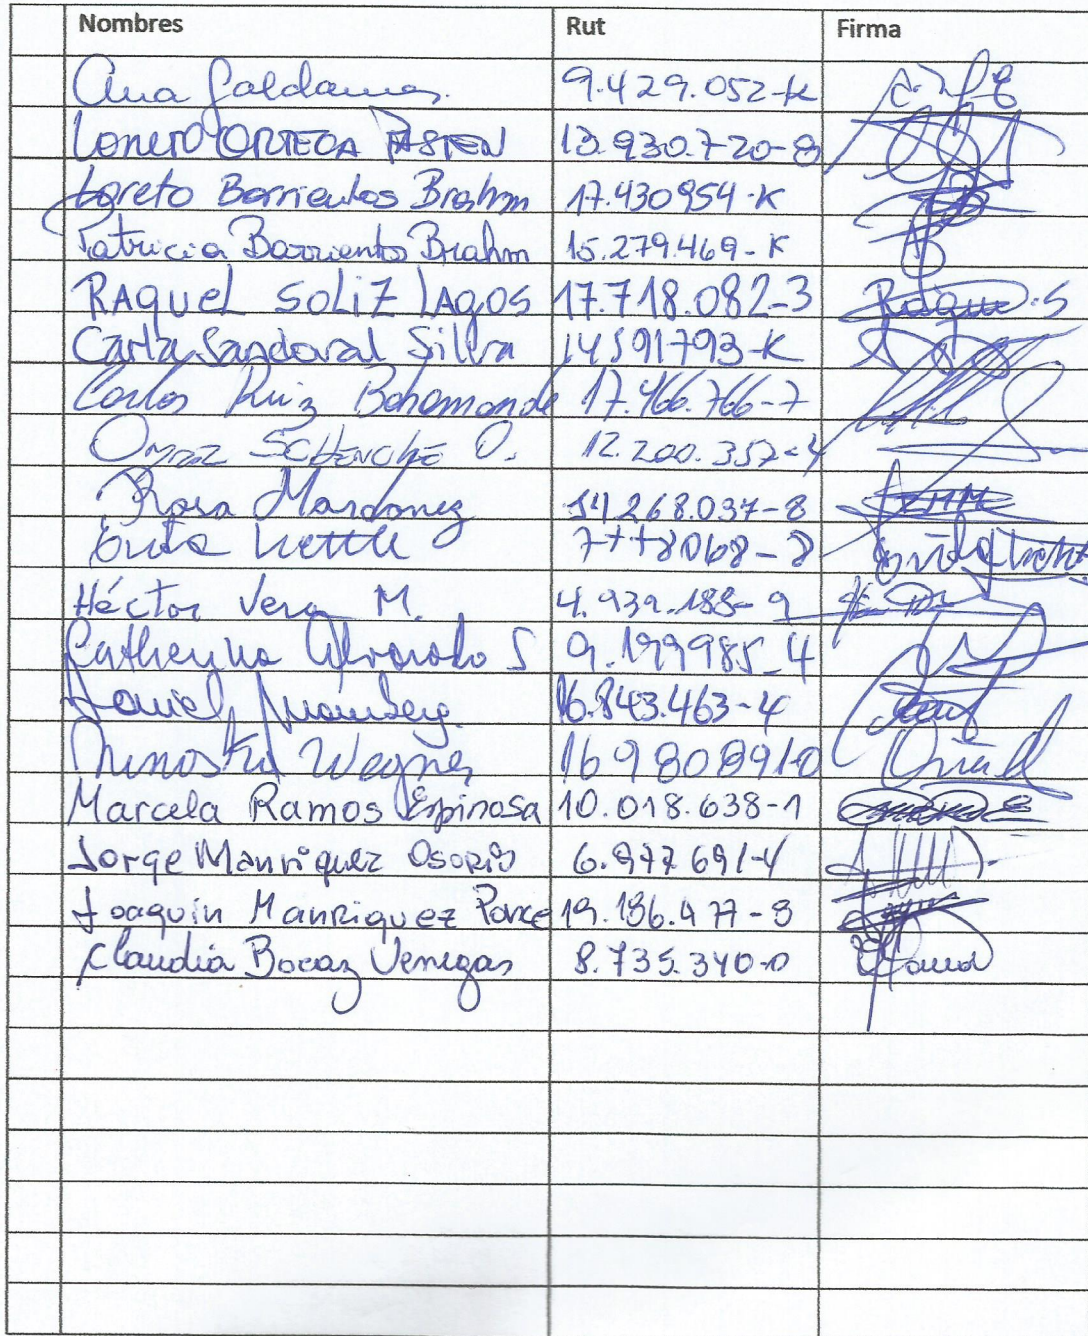 Nombres Rut Firma
Ana Galdames. 9.429.052-K
Loreto ORTEGA PASTEN 13.930.720-8
Loreto Barrientos Brahm 17.430954-K
Patricia Barrientos Brahm 15.279.469-K
RAquel SOLIZ LAgOS 17.718.082-3 Raque.S
Carla Sandoval Silva 14591793-K
Carlos Ruiz Bahamonde 17.466.766-7
Omar O. 12.200.357-4
Rosa Mardonez 14.268.037-8
7778068-8
Héctor Vera M. 4.939.188-9
Catheryna Alvarado S 9.199985-4
Daniel 16.843.463-4
Wagner 16980891-0
Marcela Ramos Espinosa 10.018.638-1
Jorge Manriquez Osorio 6.977691-4
Joaquín Manriquez Ponce 19.186.477-8
Claudia Bocaz Venegas 8.735.340-0